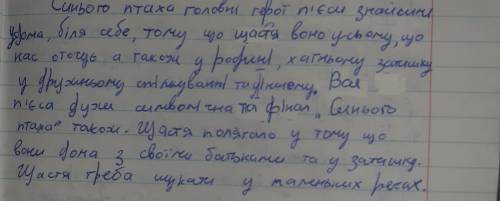 Синього птаха головні герої п'єси знайшли
удома, біля себе, тому що щастя воно усьому, що
нас оточує а також у родині, хатньому затишку
у дружньому спілкуванні та іншому. Вся
п'єса дуже символічна та фінал "Синього
птаха" також. Щастя полягало у тому що
вони дома з своїми батьками та у затишку.
Щастя треба шукати у маленьких речах.